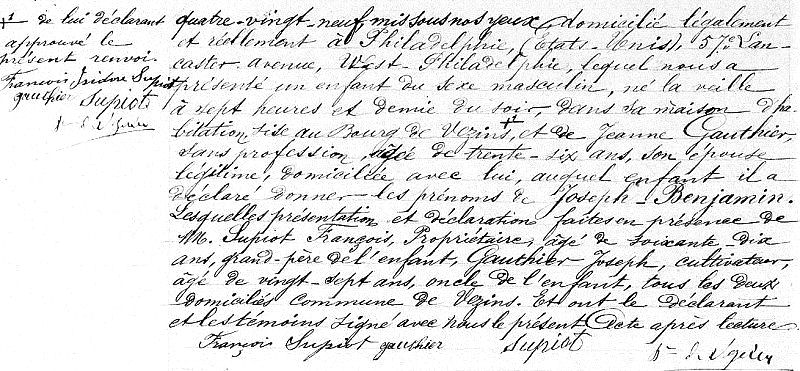 +1 de lui déclarant
approuvé le
présent renvoi
François, Isidore Supiot
gauthier Supiot
quatre-vingt-neuf, mis sous nos yeux, domicilié légalement
et réellement à Philadelphie, (Etats-Unis), 57e Lan-
caster, avenue, West-Philadelphie, lequel nous a
présenté un enfant du sexe masculin, né la veille
à sept heures et demie du soir, dans sa maison d'ha
bitation, sise au Bourg de Vezins, +1 et de Jeanne Gauthier,
sans profession, agée de trente-six ans, son épouse
légitime, domiciliée avec lui, auquel enfant il a
déclaré donner les prénoms de Joseph-Benjamin.
Lesquelles présentation et déclaration faites en présence de
MM. Supiot François, Propriétaire, âgé de soixante-dix
ans, grand-père de l'enfant, Gauthier Joseph, cultivateur,
âgé de vingt-sept ans, oncle de l'enfant, tous les deux
domiciliés commune de Vezins. Et ont le déclarant
et les témoins signé avec nous le présent Acte après lecture
François Supiot gauthier Supiot